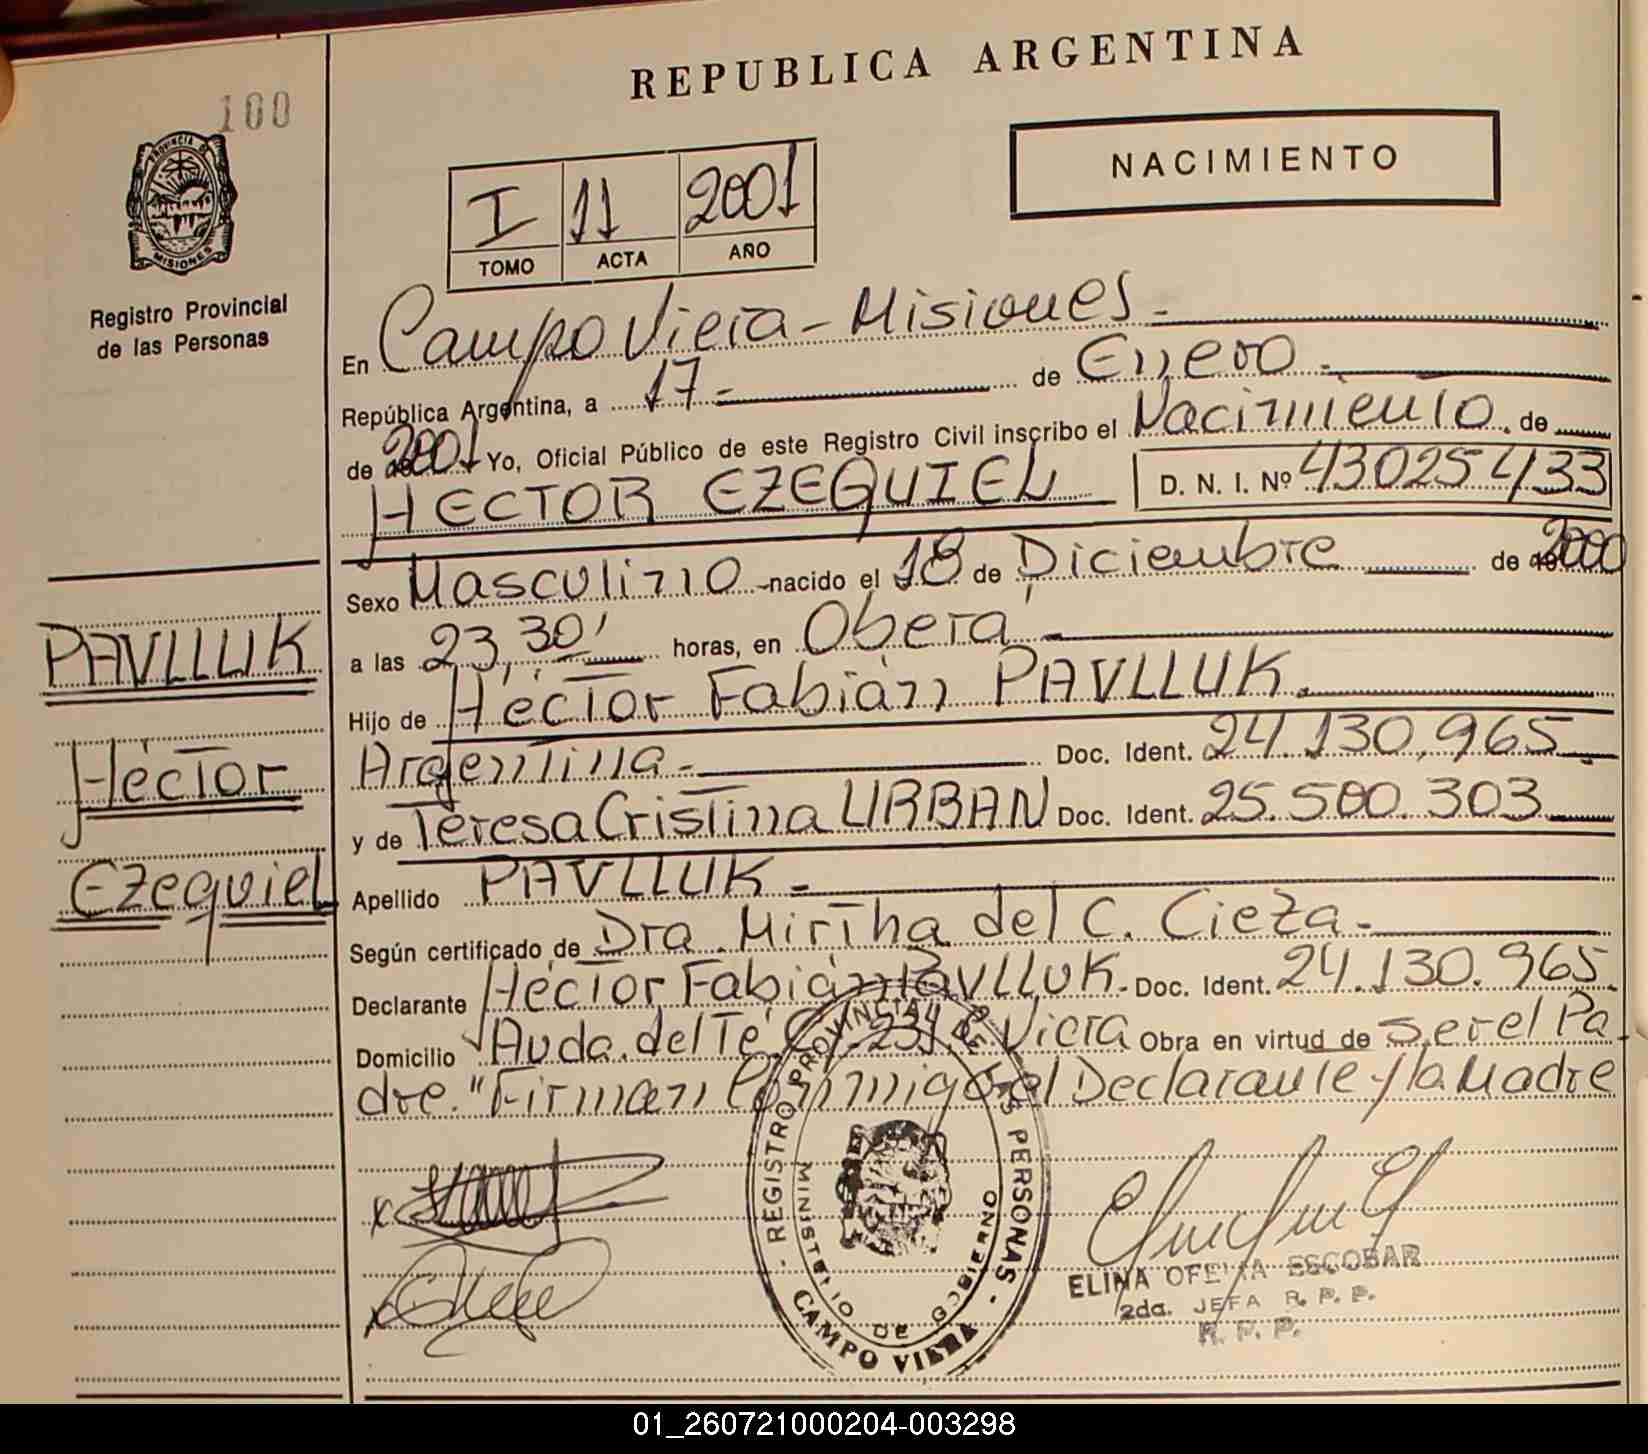 REPUBLICA ARGENTINA
100
NACIMIENTO
I 11 2001
TOMO ACTA AÑO
PROVINCIA DE
MISIONES
Registro Provincial
de las Personas
En Campo Viera - Misiones -
República Argentina, a 17 - de Enero -
de 2001 Yo, Oficial Público de este Registro Civil inscribo el Nacimiento de
HECTOR EZEQUIEL D. N. I. Nº 43025433
Sexo Masculino - nacido el 18 de Diciembre de 2000
a las 23,30' horas, en Oberá -
PAVLLUK
Hijo de Héctor Fabián PAVLLUK.
Argentina - Doc. Ident. 24.130.965
Héctor
y de Teresa Cristina URBAN Doc. Ident. 25.500.303
Ezequiel
Apellido PAVLLUK -
Según certificado de Dra. Mirtha del C. Cieza -
Declarante Héctor Fabián Pavlluk - Doc. Ident. 24.130.965
Domicilio Avda. del Té C. Viera Obra en virtud de Ser el Pa
dre. "Firman Conmigo el Declarante y la Madre
REGISTRO PROVINCIAL DE LAS PERSONAS
MINISTERIO DE GOBIERNO
CAMPO VIERA
ELINA OFELIA ESCOBAR
2da. JEFA R. P. P.
R. P. P.
01_260721000204-003298